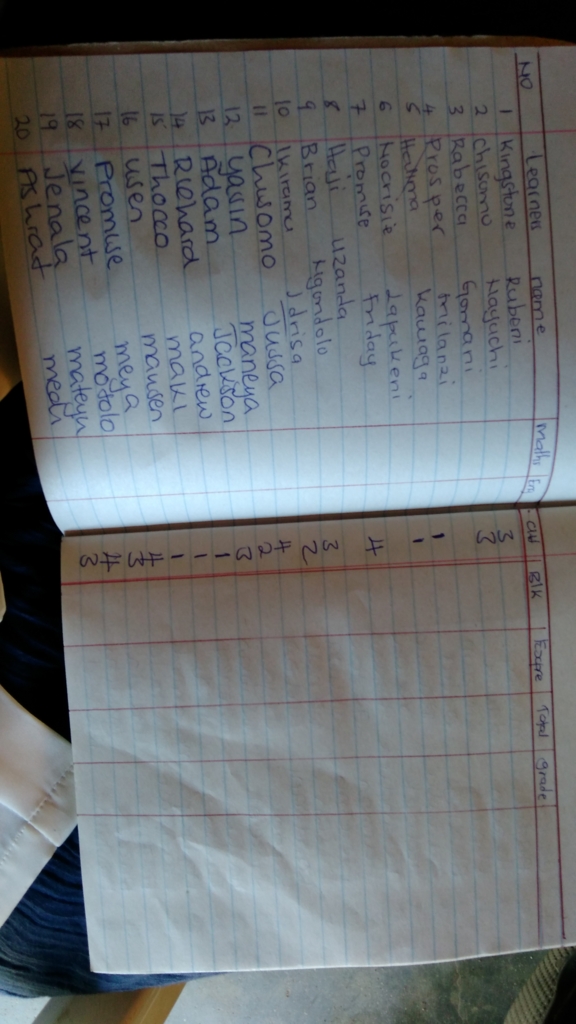 NO Learners name Maths En Chi Blk Expre Total grade
1 Kingstone Ruboni 3
2 Chisomo Nayuchi 3
3 Rabecca Gomani
4 Prosper Milanzi 1
5 Halima Kawaga 1
6 Nocrisie Zapukeni
7 Promise Friday 4
8 Haji Uzanda
9 Brian Ngondolo 3
10 Ikiramu Idrisa 2
11 Chisomo Jussa 4
12 Yasin maneya 2
13 Adam Jackson 3
14 Richard andrew 1
15 Thocco maki 1
16 usen mausen 1
17 Promise meya 4
18 Vincent mostolo 3
19 Jenala mateyu 4
20 Ashraf medi 3